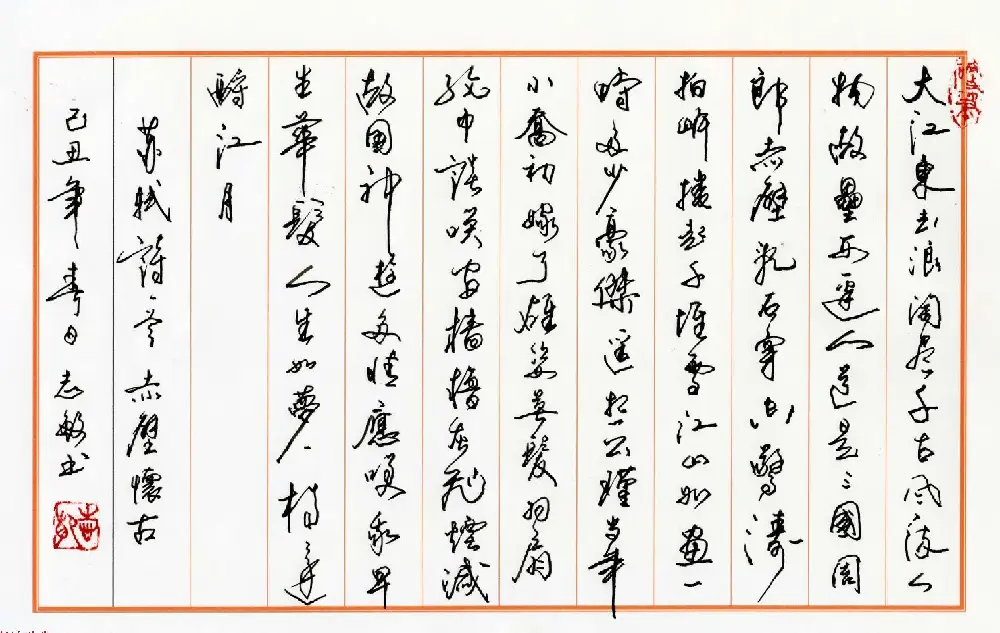 大江東去浪淘尽千古風流人
物故壘西邊人道是三國周
郎赤壁乱石穿空驚濤
拍岸捲起千堆雪江山如畫一
時多少豪傑遥想公瑾当年
小喬初嫁了雄姿英發羽扇
綸巾談笑間檣櫓灰飛煙滅
故國神遊多情應笑我早
生華髮人生如夢一樽還
酹江月
蘇軾詩赤壁懷古
己丑年春日志敏书